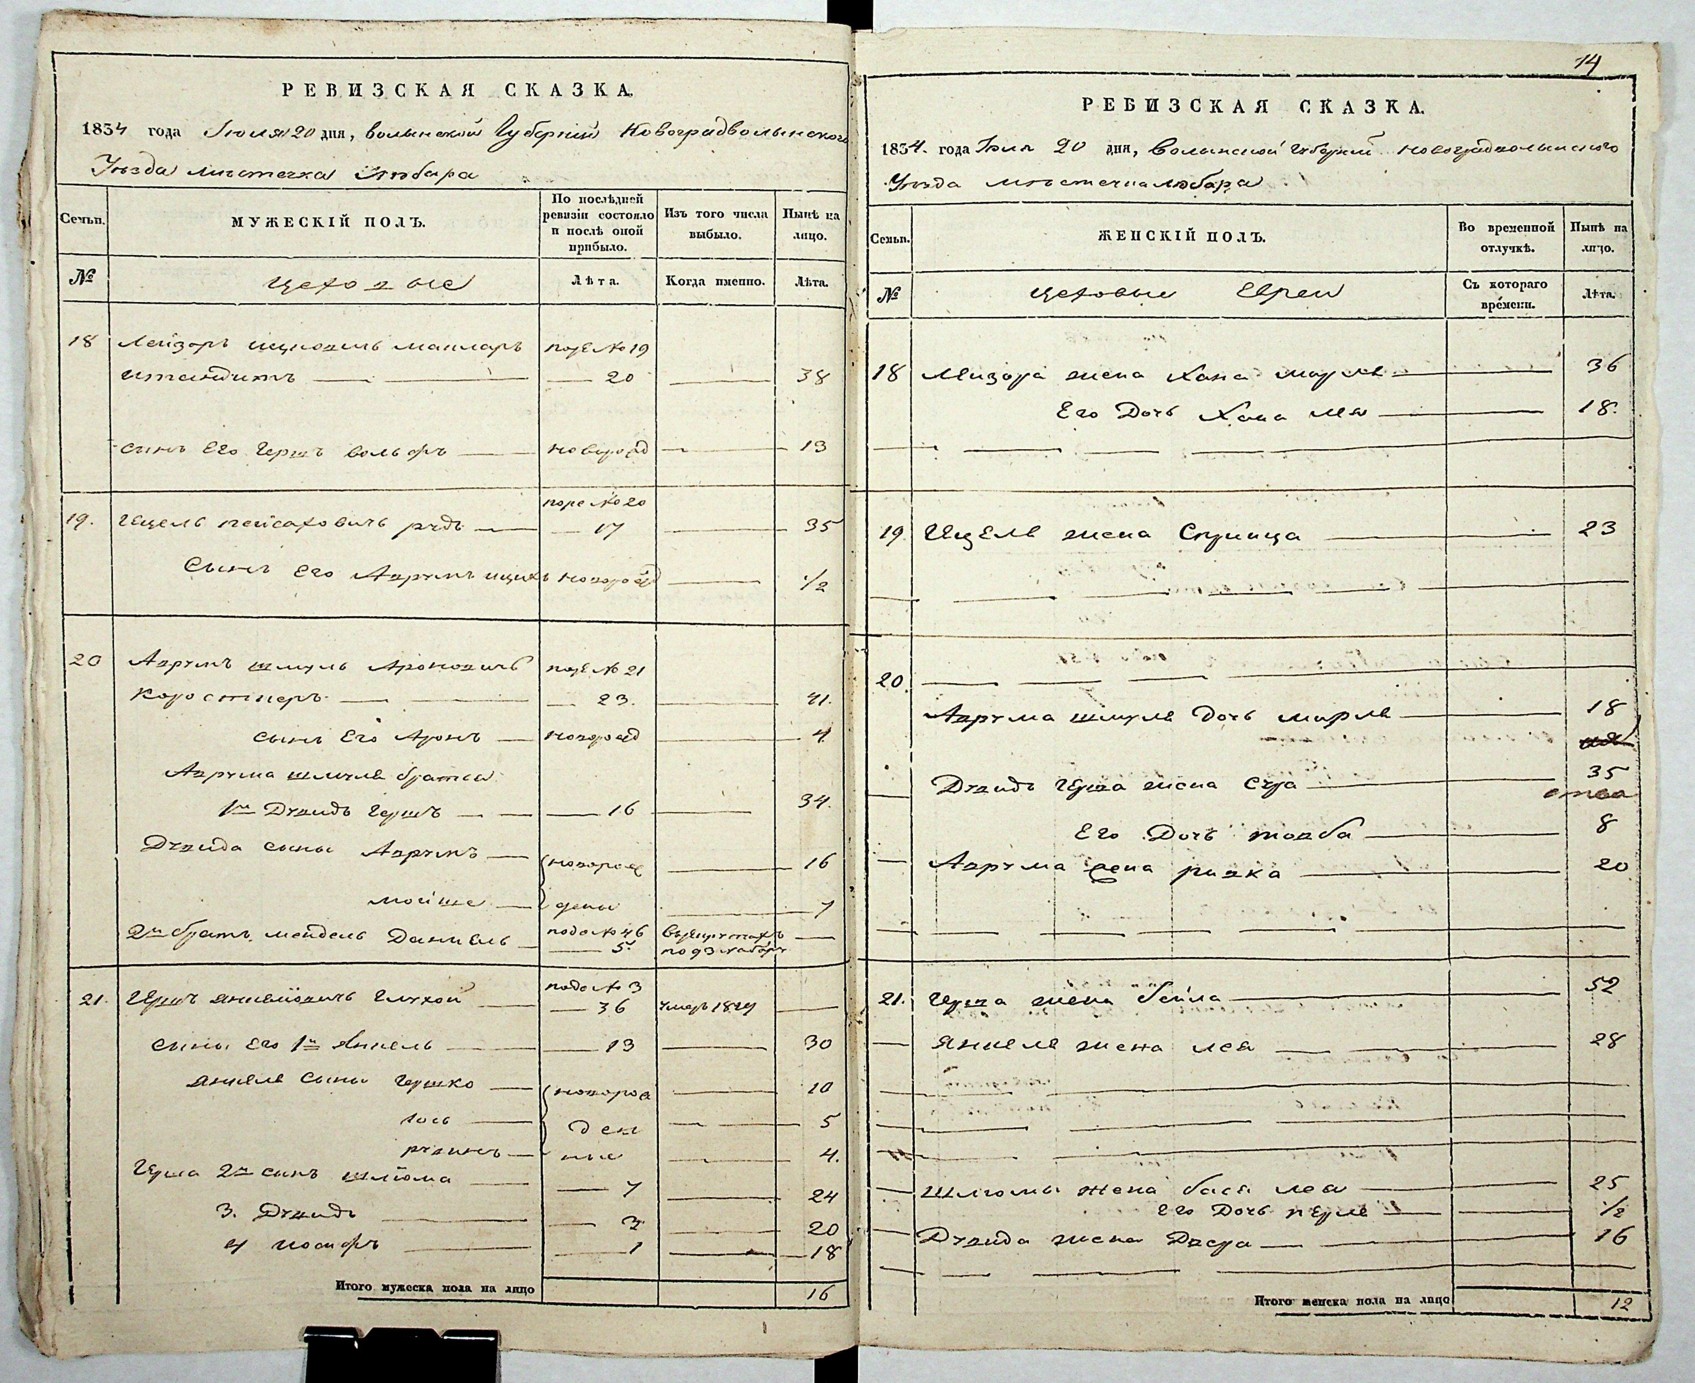 РЕВИЗСКАЯ СКАЗКА.
1834 года Июля 20 дня, Волынской Губернии Новоградволынского
Уезда местечка Любара
Семьи.
МУЖЕСКІЙ ПОЛЪ.
По послѣдней
ревизіи состояло
и послѣ оной
прибыло.
Изъ того числа
выбыло.
Нынѣ на
лицо.
№
цеховые
Лѣта.
Когда именно.
Лѣта.
18 Лейзоръ Ицковичь подъ № 19
20 38
сынъ Его Гершъ Вольфъ новорожд 13
19. Ицель Пейсаховичь подъ № 20
17 35
Сынъ Его Аврумъ Ицикъ новорожд 1/2
20 Аврумъ Шмуль Ароновичь подъ № 21
Коростнеръ 23. 41.
сынъ Его Аронъ новорожд 4
Аврума Шмуля братья
1й Дувидъ Гершъ 16 34.
Дувида сыны Аврумъ новорож 16
Мойше дены 7
2й братъ Мендель Даниель подъ № 46
5 по 93 набору
21. Гершъ Янкелiовичь Глухой подъ № 3
36 умеръ 1829
сыны Его 1й Янкель 13 30
Янкеля сыны Гершко новорож 10
Іось ден 5
Рувинъ ные 4.
Герша 2й сынъ Шлiома 7 24
3. Дувидъ 2 20
4 Иосифъ 1 18
Итого мужеска пола на лицо 16
14
РЕВИЗСКАЯ СКАЗКА.
1834. года Июля 20 дня, Волынской Губернии Новоградволынского
Уезда местечка Любара
Семьи.
ЖЕНСКІЙ ПОЛЪ.
Во временной
отлучкѣ.
Нынѣ на
лицо.
№
цеховые Евреи
Съ котораго
времени.
Лѣта.
18 Лейзора жена Хана Марля 36
Его Дочь Хана Лея 18.
19. Ицеля жена Спринца 23
20.
Аврума Шмуля Дочь Марля 18
Дувидъ Герша жена Сура 35
Его Дочь Товба 8
Аврума жена Ривка 20
21. Герша жена Бейла 52
Янкеля жена Лея 28
Шлiомы жена Бася Лея 25
Его Дочь Перля 1/2
Дувида жена Двера 16
Итого женска пола на лицо 12